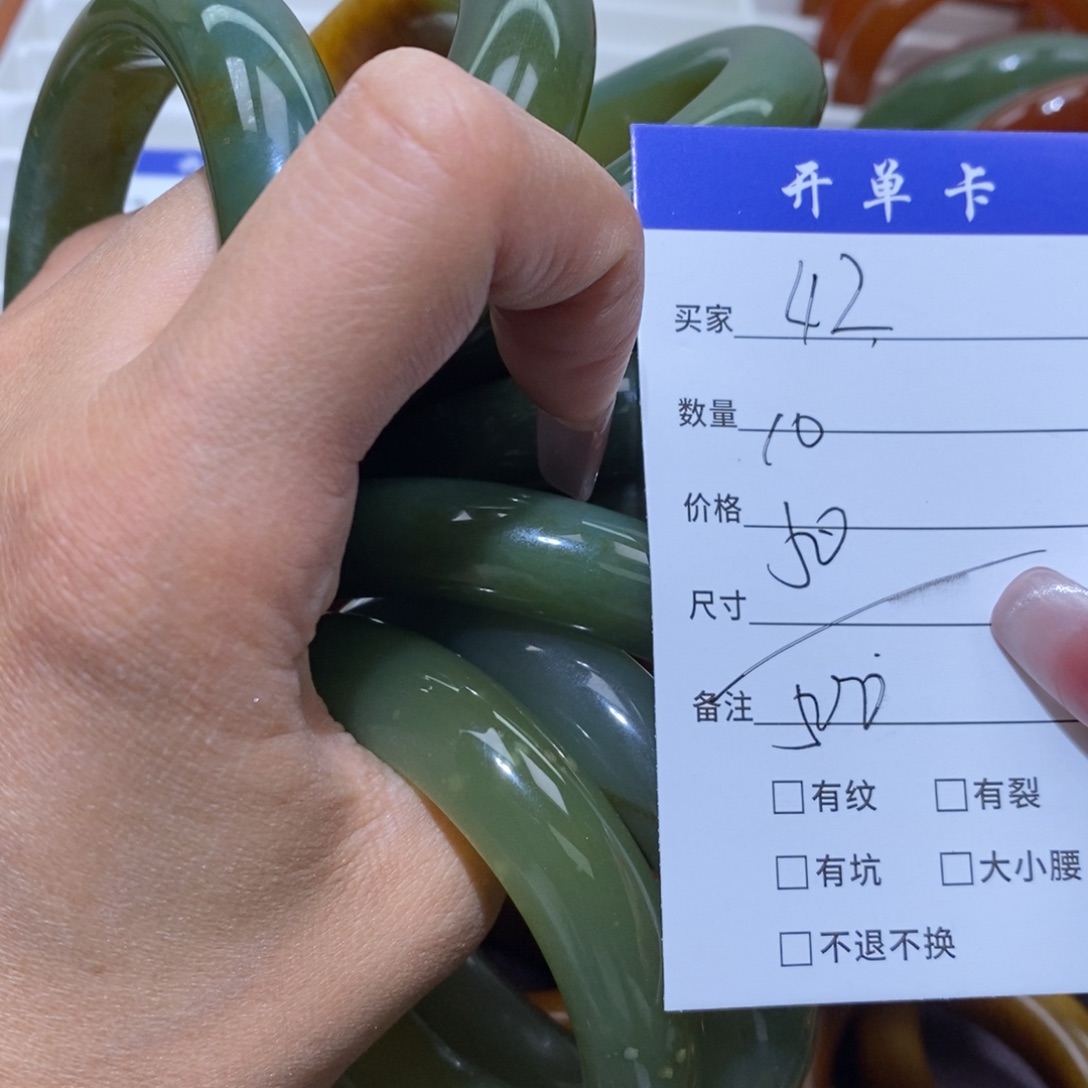 开单卡
买家 42
数量 10
价格 50
尺寸
备注 500
□有纹 □有裂
□有坑 □大小腰
□不退不换